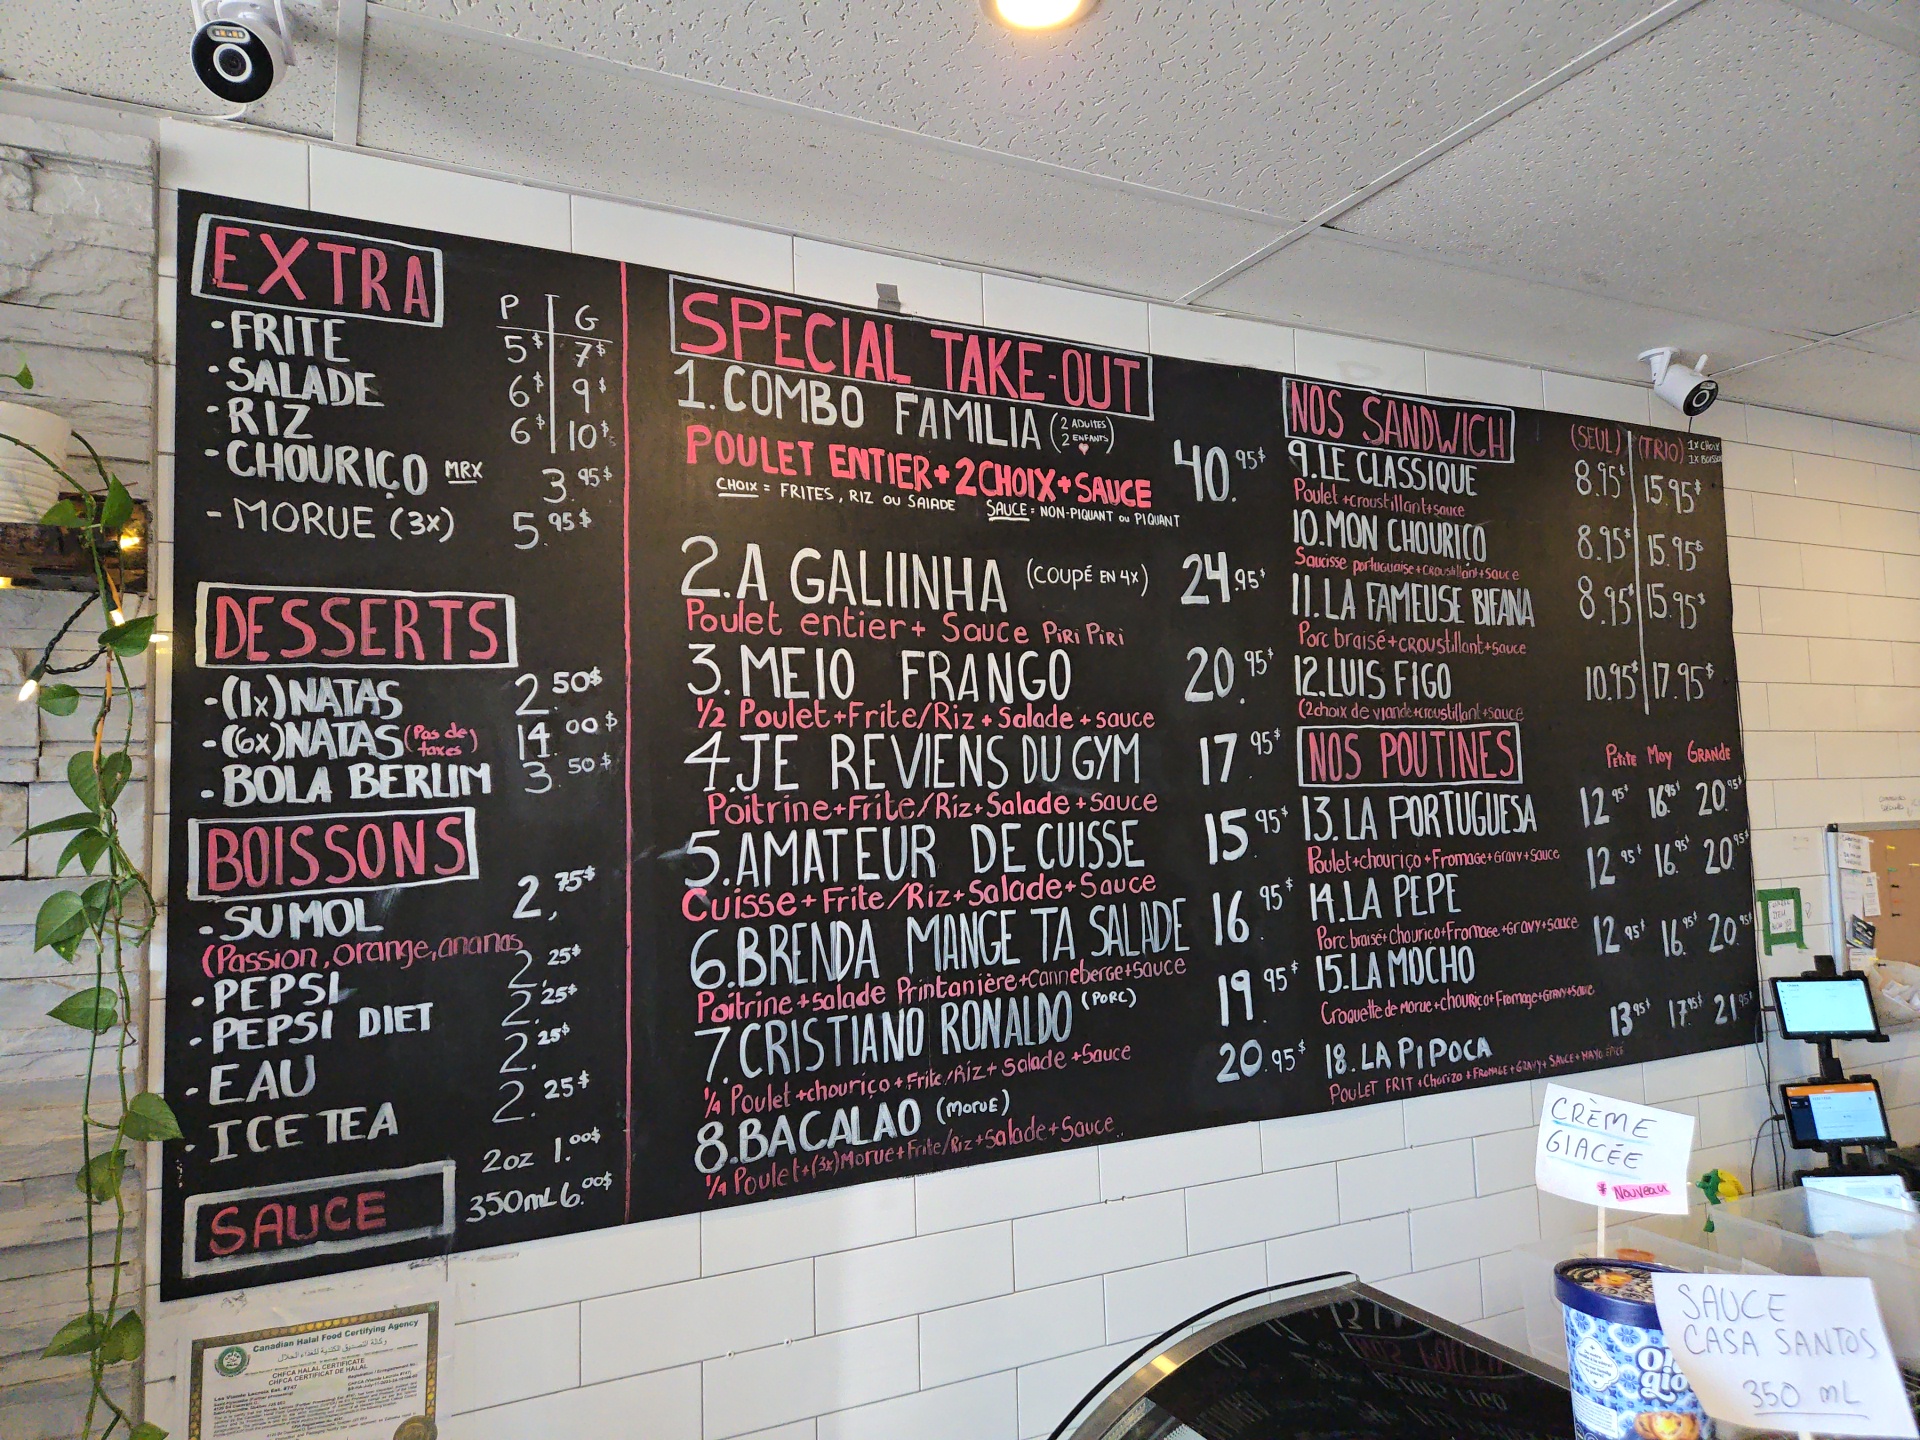 EXTRA
P G
-FRITE 5$ 7$
-SALADE 6$ 9$
-RIZ 6$ 10$
-CHOURIÇO MRX 3.95$
-MORUE (3x) 5.95$
DESSERTS
-(1x)NATAS 2.50$
-(6x)NATAS (Pas de taxes) 14.00$
-BOLA BERLIM 3.50$
BOISSONS
-SUMOL 2,75$
(Passion, orange, ananas
-PEPSI 2.25$
-PEPSI DIET 2.25$
-EAU 2.25$
-ICE TEA 2.25$
SAUCE
2oz 1.00$
350mL 6.00$
SPECIAL TAKE-OUT
1.COMBO FAMILIA (2 ADULTES 2 ENFANTS) 40.95$
POULET ENTIER+2CHOIX+SAUCE
CHOIX = FRITES, RIZ OU SALADE SAUCE = NON-PIQUANT OU PIQUANT
2.A GALIINHA (COUPÉ EN 4X) 24.95$
Poulet entier+ Sauce PiRi PiRi
3.MEIO FRANGO 20.95$
1/2 Poulet+Frite/Riz+Salade+sauce
4.JE REVIENS DU GYM 17.95$
Poitrine+Frite/Riz+Salade+Sauce
5.AMATEUR DE CUISSE 15.95$
Cuisse+Frite/Riz+Salade+Sauce
6.BRENDA MANGE TA SALADE 16.95$
Poitrine+salade Printanière+canneberge+sauce
7.CRISTIANO RONALDO (PORC) 19.95$
1/4 Poulet+chouriço+Frite/Riz+Salade+Sauce
8.BACALAO (MORUE) 20.95$
1/4 Poulet+(3x)Morue+Frite/Riz+Salade+Sauce
NOS SANDWICH (SEUL) (TRIO) 1X CHOIX
1X BOISSON
9.LE CLASSIQUE 8.95$ 15.95$
Poulet+croustillant+sauce
10.MON CHOURIÇO 8.95$ 15.95$
Saucisse portugaise+croustillant+sauce
11.LA FAMEUSE BIFANA 8.95$ 15.95$
Porc braisé+croustillant+sauce
12.LUIS FIGO 10.95$ 17.95$
(2choix de viande+croustillant+sauce
NOS POUTINES Petite Moy GRANDE
13.LA PORTUGUESA 12.95$ 16.95$ 20.95$
Poulet+chouriço+Fromage+Gravy+Sauce
14.LA PEPE 12.95$ 16.95$ 20.95$
Porc braisé+chouriço+Fromage+Gravy+sauce
15.LA MOCHO 12.95$ 16.95$ 20.95$
Croquette de Morue+chouriço+Fromage+Gravy+Sauce
18.LA PIPOCA 13.95$ 17.95$ 21.95$
POULET FRIT+Chorizo+FROMAGE+GRAVY+SAUCE+MAYO
CRÈME
GLACÉE
* Nouveau
SAUCE
CASA SANTOS
350 mL
Canadian Halal Food Certifying Agency
CHFCA HALAL CERTIFICATE
CHFCA CERTIFICAT DE HALAL